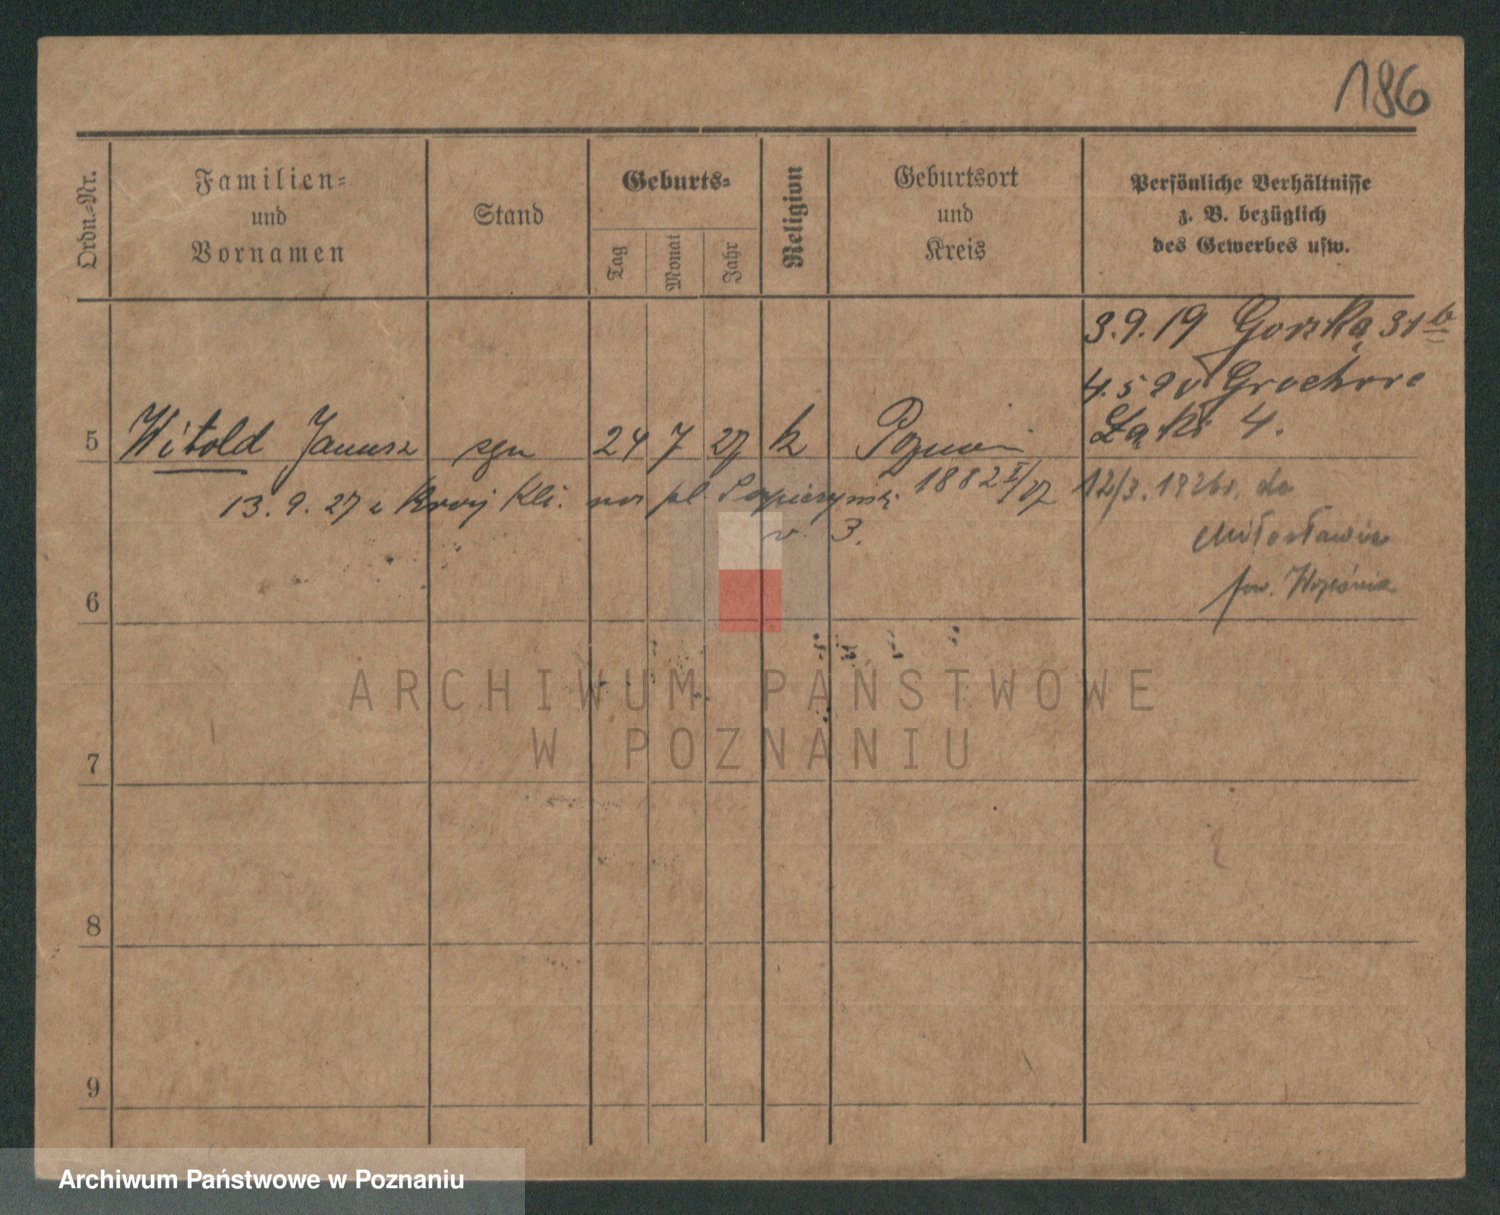 186
Ordn.-Nr.
Familien-
und
Vornamen
Stand
Geburts-
Tag
Monat
Jahr
Religion
Geburtsort
und
Kreis
Persönliche Verhältnisse
z. B. bezüglich
des Gewerbes usw.
3.9.19 Gorzka 31 b
4.5 20 Grochowe
Łąki 4.
5 Witold Janusz syn 24 7 27 k Poznań
13.9.27 z Kroj Kli. na pl. Sapieżyński 1882 I/27
v. 3.
12/3.1926r. do
Miłosławia
pow. Września
6
7
8
9
ARCHIWUM PAŃSTWOWE
W POZNANIU
Archiwum Państwowe w Poznaniu